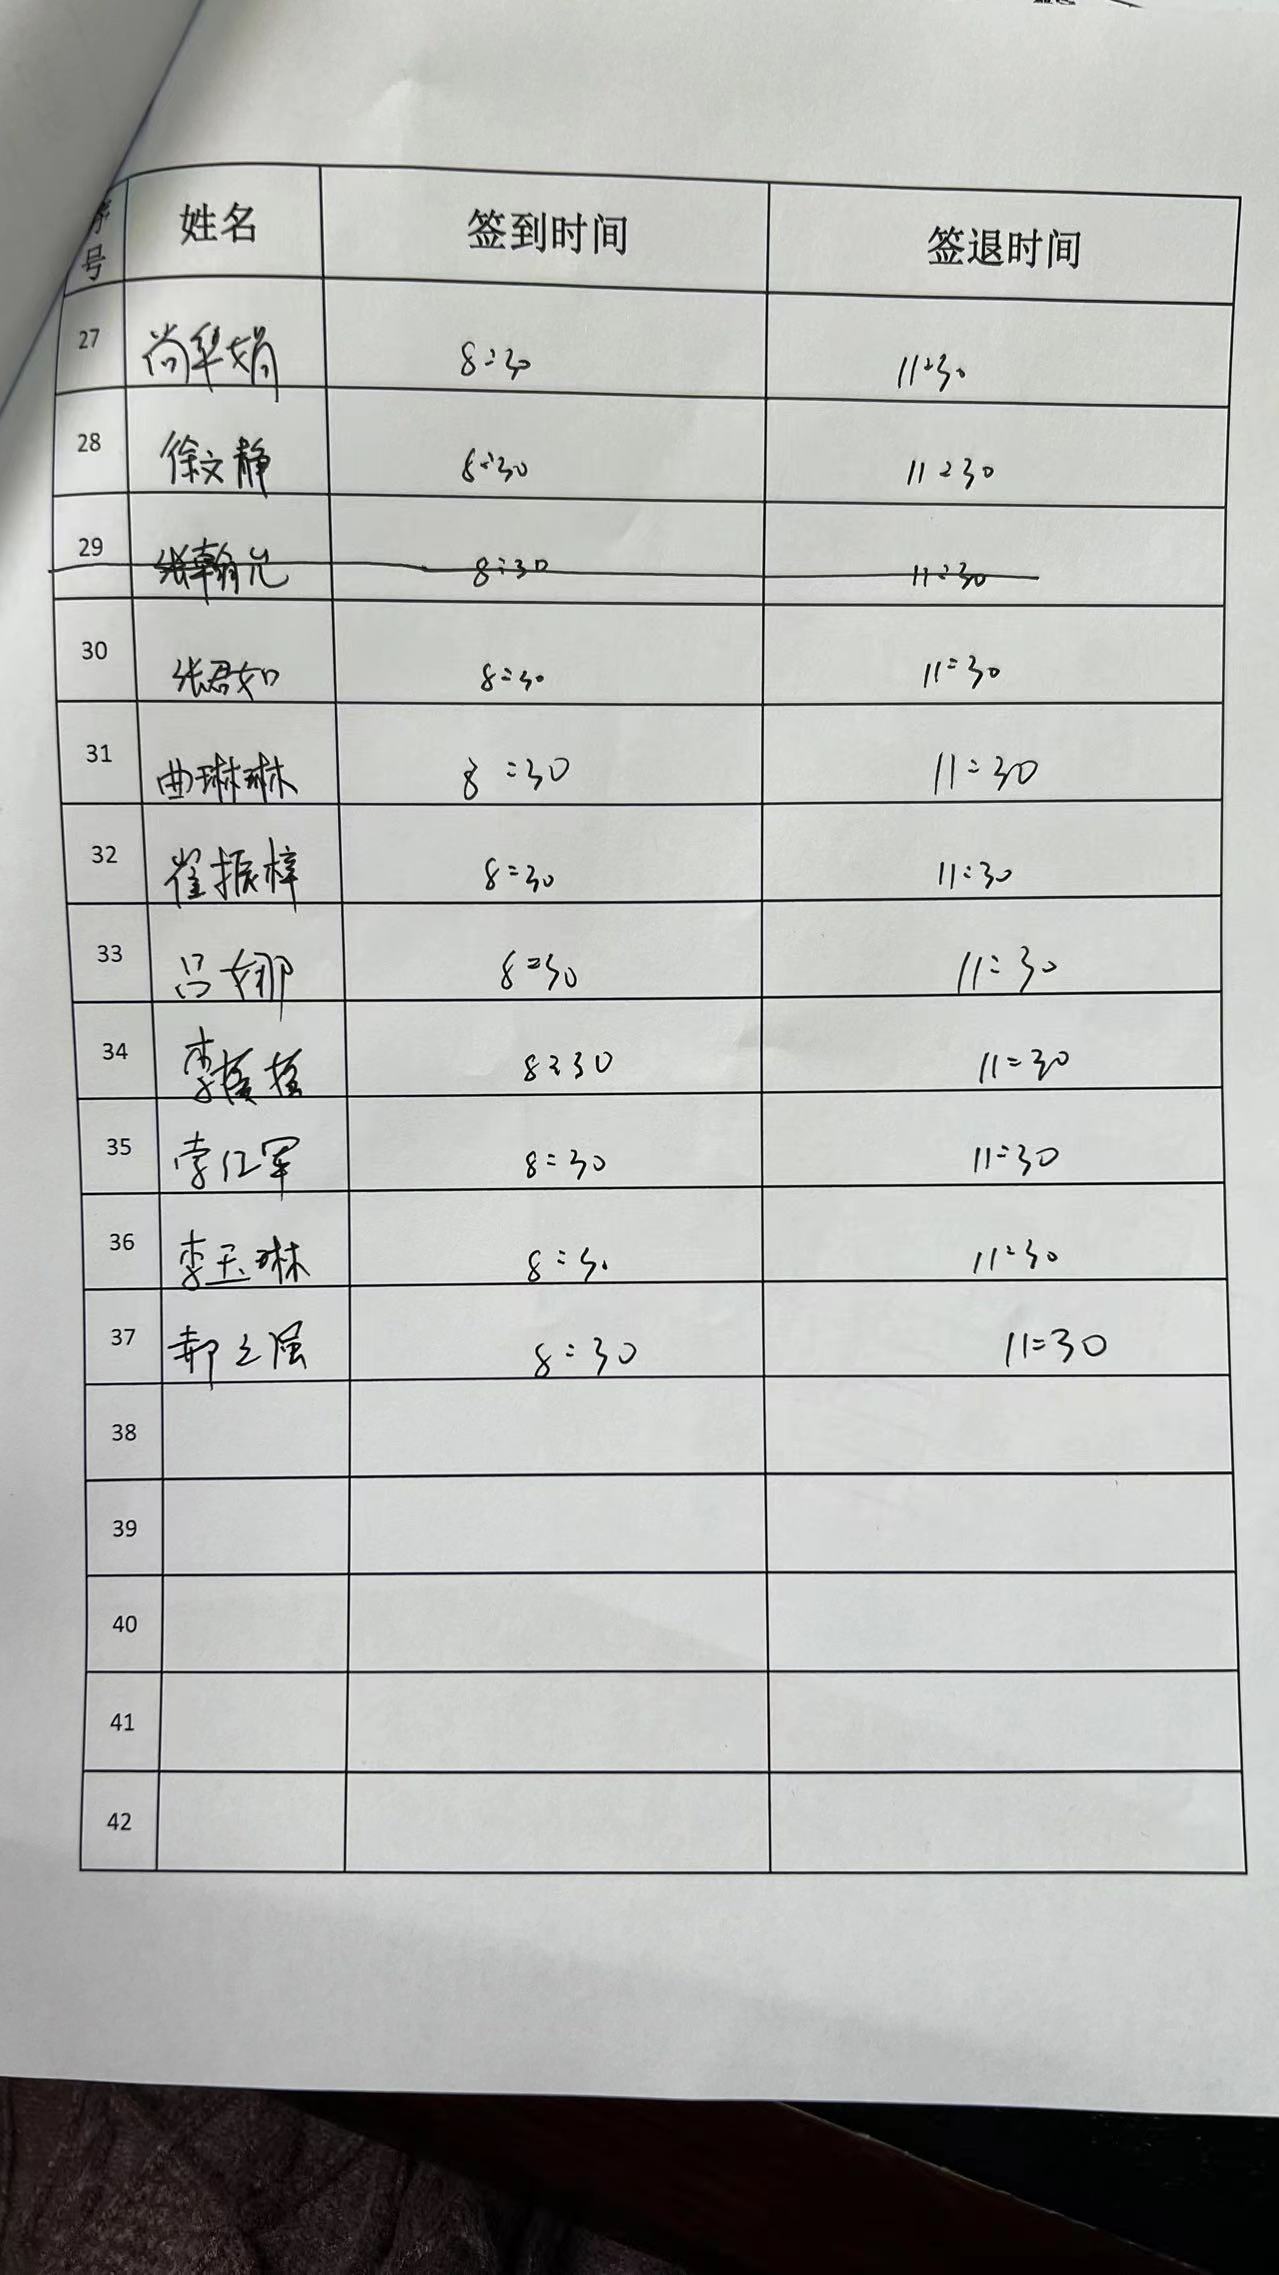 序号 姓名 签到时间 签退时间
27 尚华娟 8:30 11:30
28 徐文静 8:30 11:30
29 张翰元 8:30 11:30
30 张君如 8:30 11:30
31 曲琳琳 8:30 11:30
32 崔振梓 8:30 11:30
33 吕娜 8:30 11:30
34 李 8:30 11:30
35 李红军 8:30 11:30
36 李玉琳 8:30 11:30
37 郝立强 8:30 11:30
38
39
40
41
42